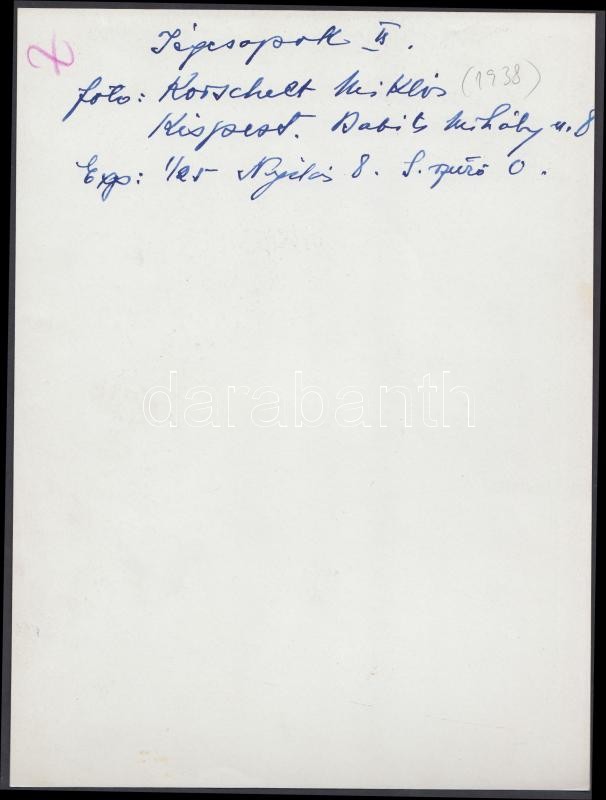 Jégcsapok II.
foto: Korschelt Miklós (1938)
Kispest. Babits Mihály u. 8
Exp: 1/25 Nyílás 8. S. szűrő 0.
darabanth